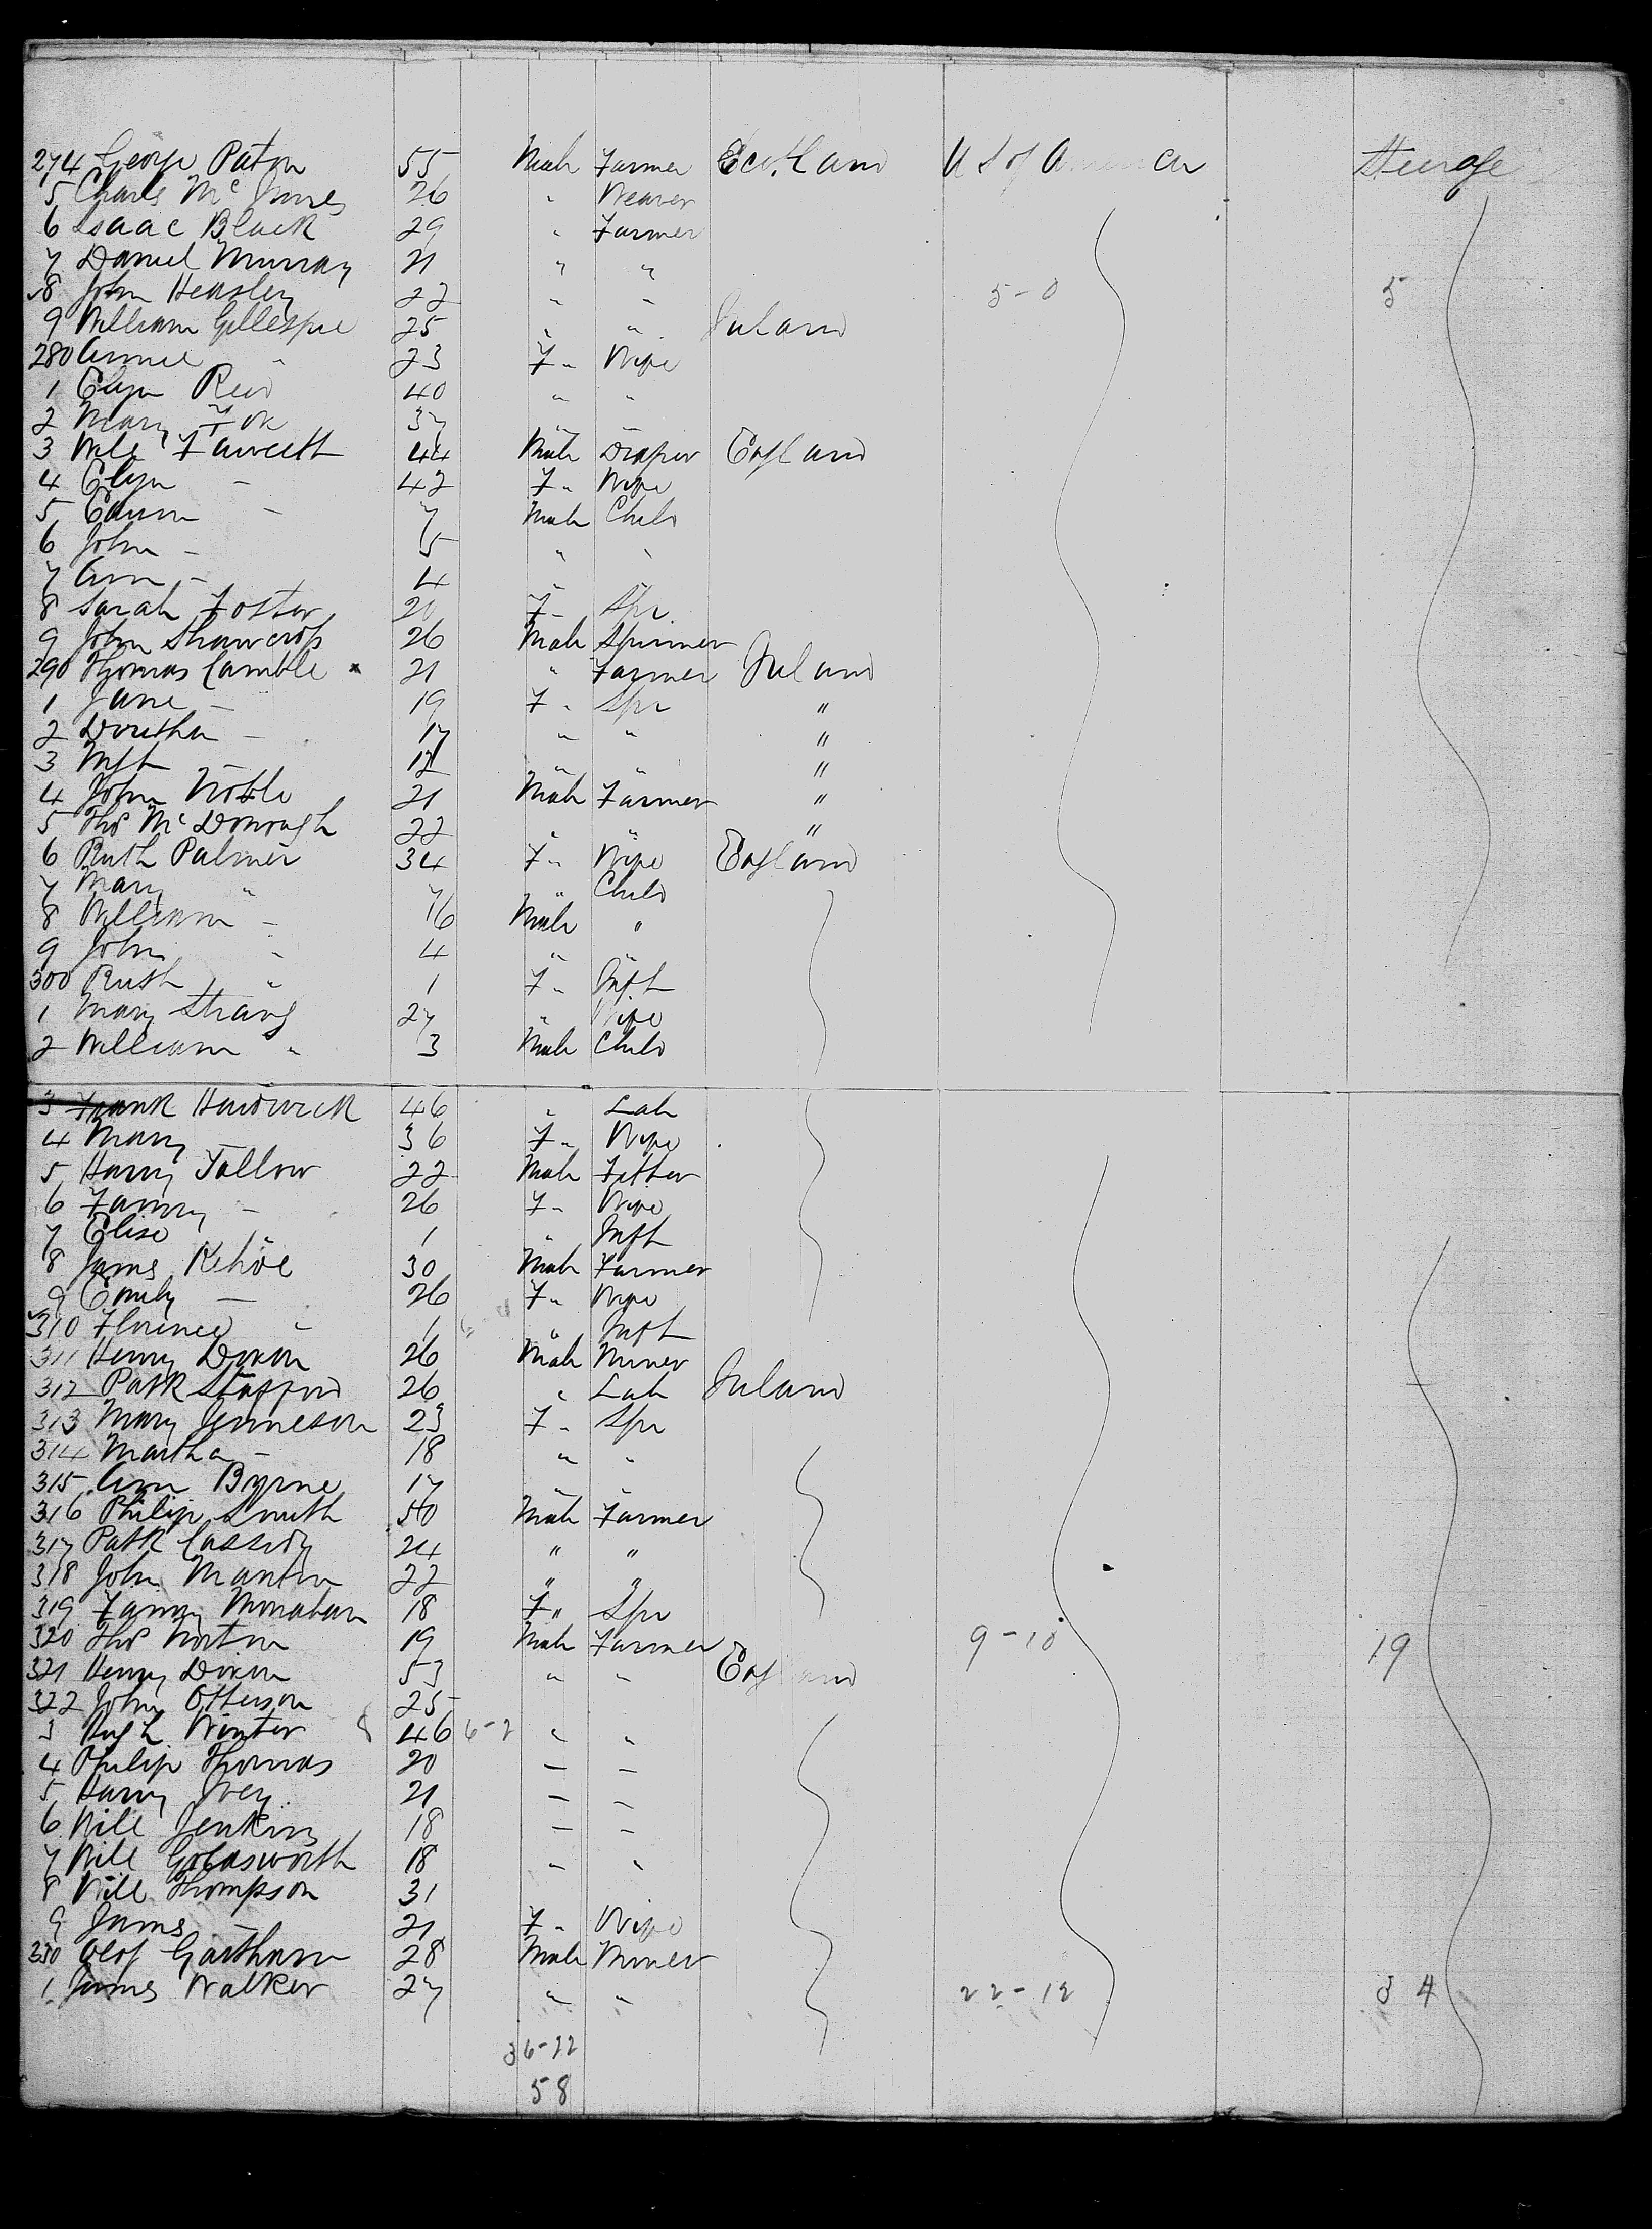 274 George Paton 55 Male Farmer Scotland U S of America Steerage
5 Charles Mc Innes 26 " Weaver
6 Isaac Black 29 " Farmer
7 Daniel Murray 21 " "
8 John Heasley 22 " " 5-0 5
9 William Gillespie 25 " " Ireland
280 Annie " 23 F " Wife
1 Eliza Reid 40 " "
2 Mary Fox 37 " "
3 Wm Fawcett 44 Male Draper England
4 Eliza - 42 F " Wife
5 Edwin - 7 Male Child
6 John - 5 " "
7 Ann - 4 " "
8 Sarah Foster 20 F - Spr
9 John Shawcross 26 Male Spinner
290 Thomas Camble 21 " Farmer Ireland
1 Jane - 19 F " Spr "
2 Doretha - 17 " " "
3 12 " " "
4 John Noble 21 Male Farmer "
5 Thos McDonough 22 " " "
6 Ruth Palmer 34 F " Wife England
7 Mary " 7 " Child
8 William - 16 Male "
9 John " 4 " "
300 Ruth " 1 F " Inft
1 Mary Strang 27 " Wife
2 William " 3 Male Child
3 Frank Hardwick 46 " Lab
4 Mary 36 F " Wife
5 Harry Tallow 22 Male Fitter
6 Fanny - 26 F " Wife
7 Elise " 1 " Inft
8 James Kehoe 30 Male Farmer
9 Emily - 26 F " Wife
310 Florence " 1 " Inft
311 Henry Dixon 26 Male Miner
312 Patk Stafford 26 " Lab Ireland
313 Mary Jenneson 23 F " Spr
314 Martha - 18 " "
315 Ann Byrne 17
316 Philip Smith 50 Male Farmer
317 Patk Cassidy 24 " "
318 John Mantin 22 " "
319 Fanny Monahan 18 F " Spr
320 Thos Norton 19 Male Farmer 9-10 19
321 Henry Dixon 53 " " England
322 John Otterson 25
3 Hugh Winter 46 6-2 " "
4 Philip Thomas 20 - -
5 Harry Ivey 21 - -
6 Will Jenkins 18 - -
7 Will Goldsworth 18 " "
8 Will Thompson 31
9 James - 21 F " Wife
330 Olof 28 Male Miner
1 James Walker 27 " " 22-12 34
36-22
58